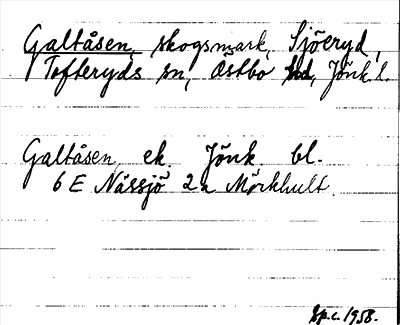 Galtåsen, skogsmark, Sjöeryd,
Tofteryds sn, Östbo hd, Jönk. l.
Galtåsen ek. Jönk bl.
6 E Nässjö 2a Mörkhult.
Sp.c. 1958.